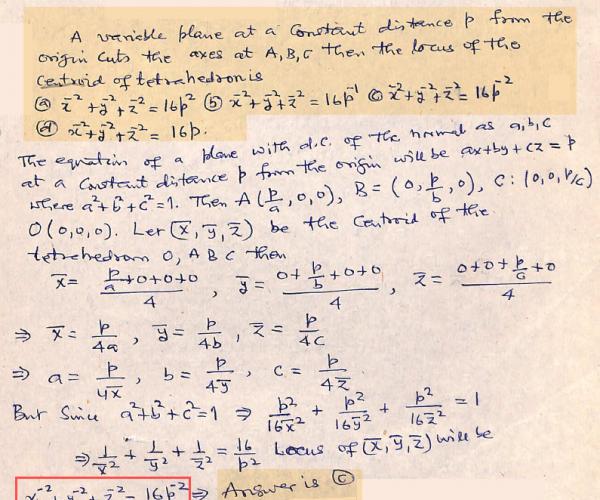 A variable plane at a constant distance p from the
origin cuts the axes at A, B, C then the locus of the
centroid of tetrahedron is
ⓐ x̄⁻² + ȳ⁻² + z̄⁻² = 16p² ⓑ x̄⁻² + ȳ⁻² + z̄⁻² = 16p⁻¹ ⓒ x̄⁻² + ȳ⁻² + z̄⁻² = 16p⁻²
ⓓ x̄⁻² + ȳ⁻² + z̄⁻² = 16p.
The equation of a plane with d.c. of the normal as a, b, c
at a constant distance p from the origin will be ax+by+cz = p
where a²+b²+c²=1. Then A(p/a, 0, 0), B = (0, p/b, 0), C: (0, 0, p/c)
O(0,0,0). Let (x̄, ȳ, z̄) be the centroid of the
tetrahedron O, A B C then
x̄ = (p/a+0+0+0)/4, ȳ = (0+p/b+0+0)/4, z̄ = (0+0+p/c+0)/4
⇒ x̄ = p/4a, ȳ = p/4b, z̄ = p/4c
⇒ a = p/4x̄, b = p/4ȳ, c = p/4z̄
But Since a²+b²+c²=1 ⇒ p²/16x̄² + p²/16ȳ² + p²/16z̄² = 1
⇒ 1/x̄² + 1/ȳ² + 1/z̄² = 16/p² Locus of (x̄, ȳ, z̄) will be
x⁻² + y⁻² + z⁻² = 16p⁻² ⇒ Answer is ⓒ